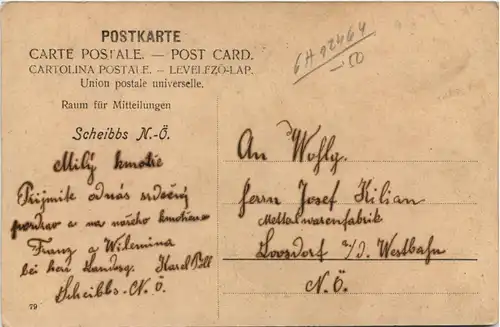 POSTKARTE
CARTE POSTALE. — POST CARD.
CARTOLINA POSTALE. — LEVELEZŐ-LAP.
Union postale universelle.
Raum für Mitteilungen
6H92464
-50
Scheibbs N.-Ö.
Milý kmotře
Přijmite od nás srdečný
pozdrav a na našeho kmotřence
Franz a Wilemina
bei herr Landsg. Karel Pöll
Scheibbs. N. Ö.
79
An Wohlg.
Herrn Josef Kilian
Mettalwarenfabrik
Loosdorf a/d. Westbahn
N. Ö.